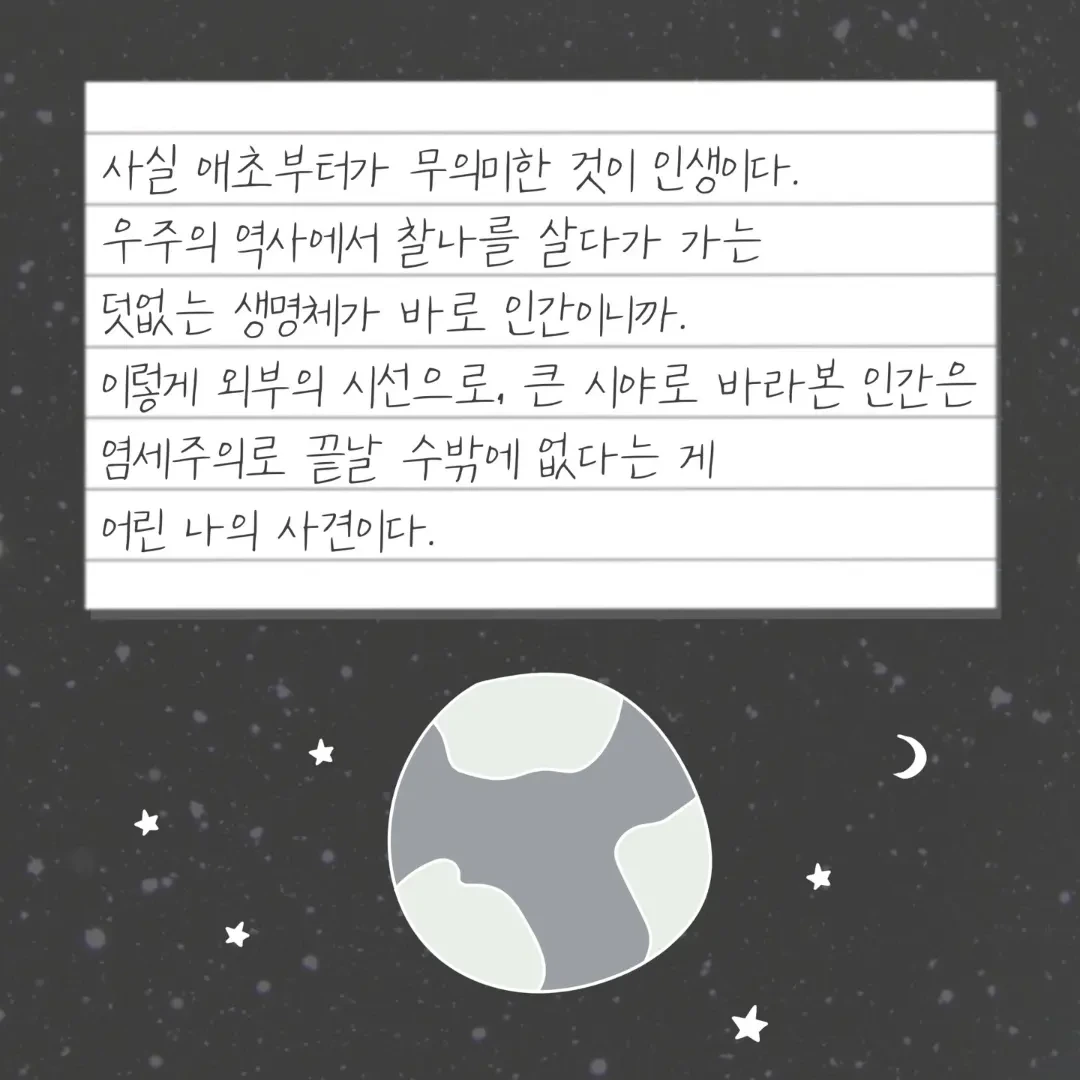 사실 애초부터가 무의미한 것이 인생이다.
우주의 역사에서 찰나를 살다가 가는
덧없는 생명체가 바로 인간이니까.
이렇게 외부의 시선으로, 큰 시야로 바라본 인간은
염세주의로 끝날 수밖에 없다는 게
어린 나의 사견이다.